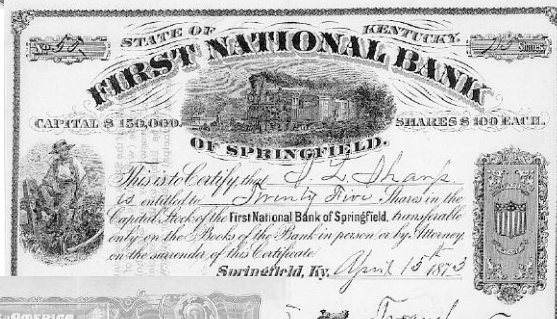 STATE OF KENTUCKY.
FIRST NATIONAL BANK
CAPITAL $ 150,000. SHARES $ 100 EACH.
OF SPRINGFIELD.
This is to Certify, that S. L. Sharp
is entitled to Twenty Five Shares in the
Capital Stock of the First National Bank of Springfield, transferable
only on the Books of the Bank in person or by Attorney
on the surrender of this Certificate
Springfield, Ky. April 15th 1873
AMERICA